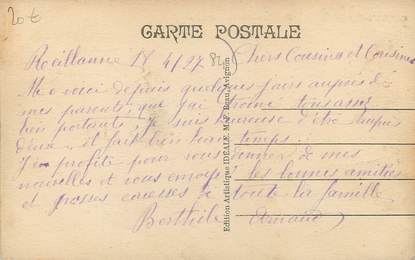 20€
CARTE POSTALE
Reillanne 18/4/27 Chers Cousins et Cousines
Me voici depuis quelques jours auprès de
mes parents, que j'ai trouvé tous assez
bien portants, je suis heureuse d'être auprès
d'eux, et fait très beau temps.
J'en profite pour vous donner de mes
nouvelles et vous envoyer les bonnes amitiés
et grosses caresses de toute la famille
Berthile Arnaud
Edition Artistique IDEALE, M. Z. Beau, Avignon